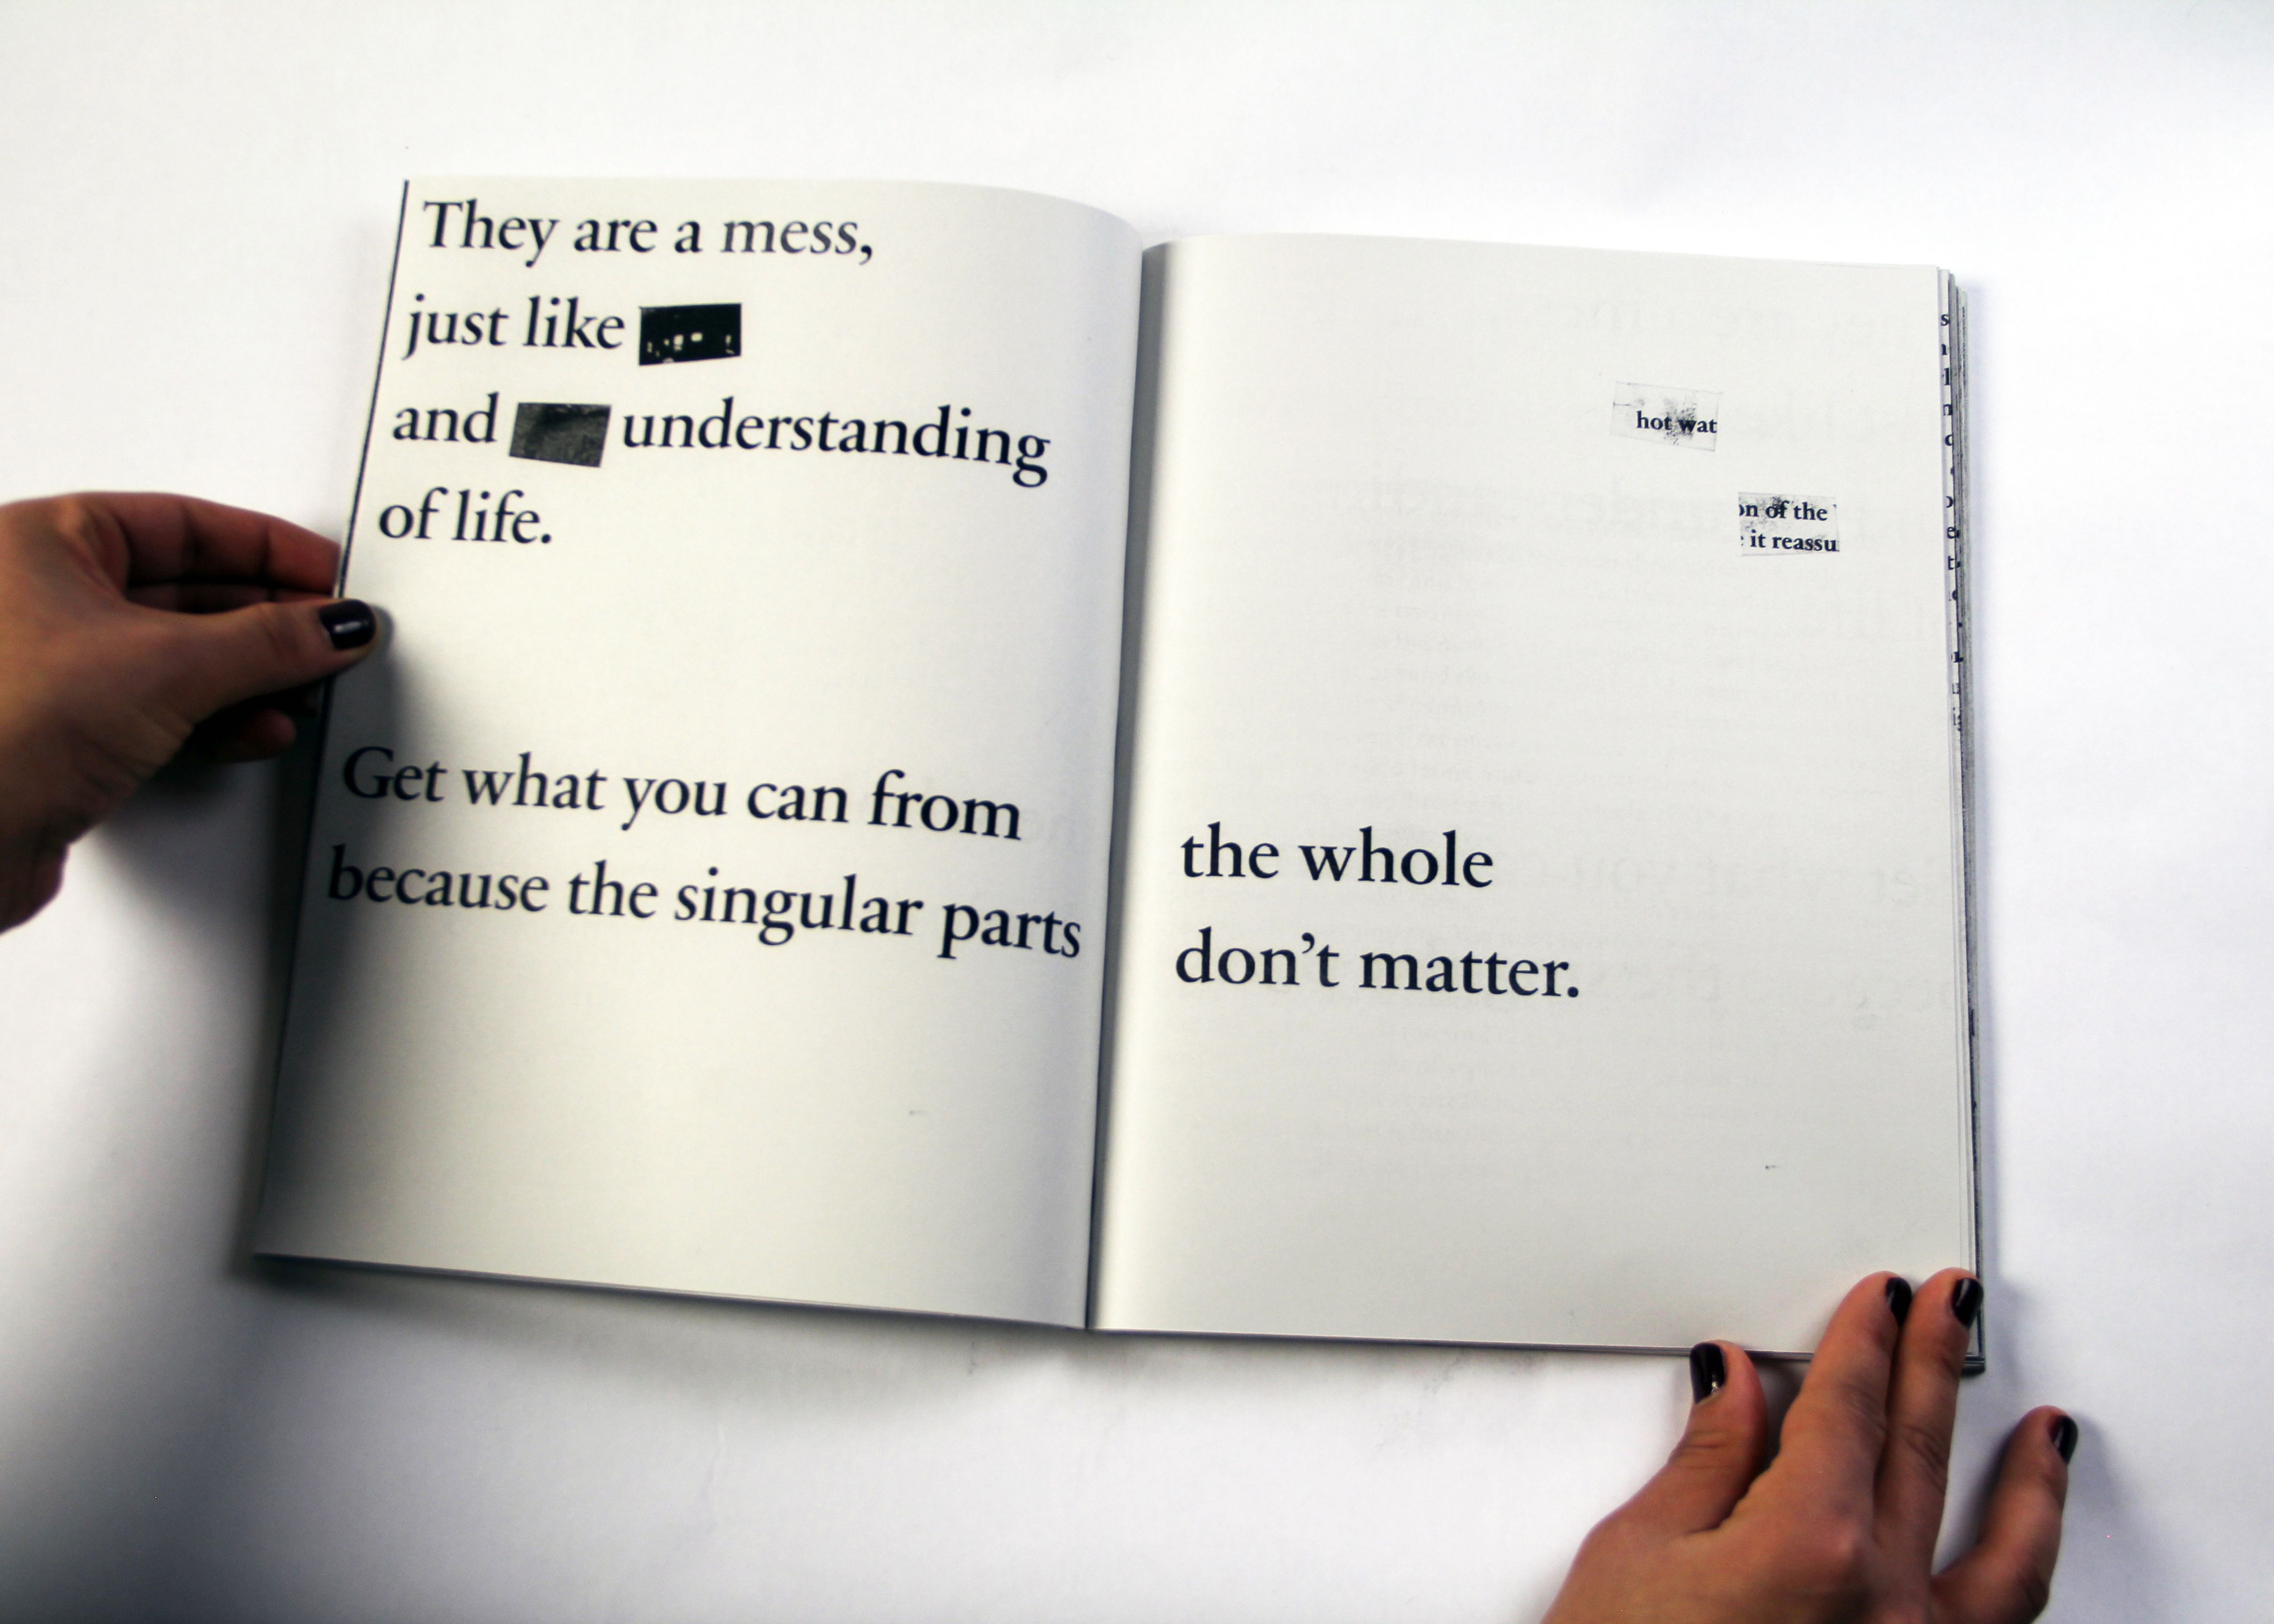 They are a mess,
just like
and understanding
of life.
Get what you can from
because the singular parts
hot wat
on of the
it reassu
the whole
don't matter.